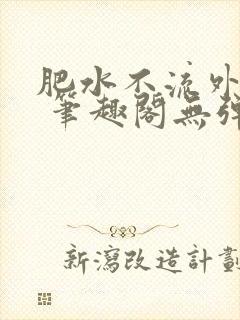 肥水不流外
筆趣閣無彈
新瀉改造計劃